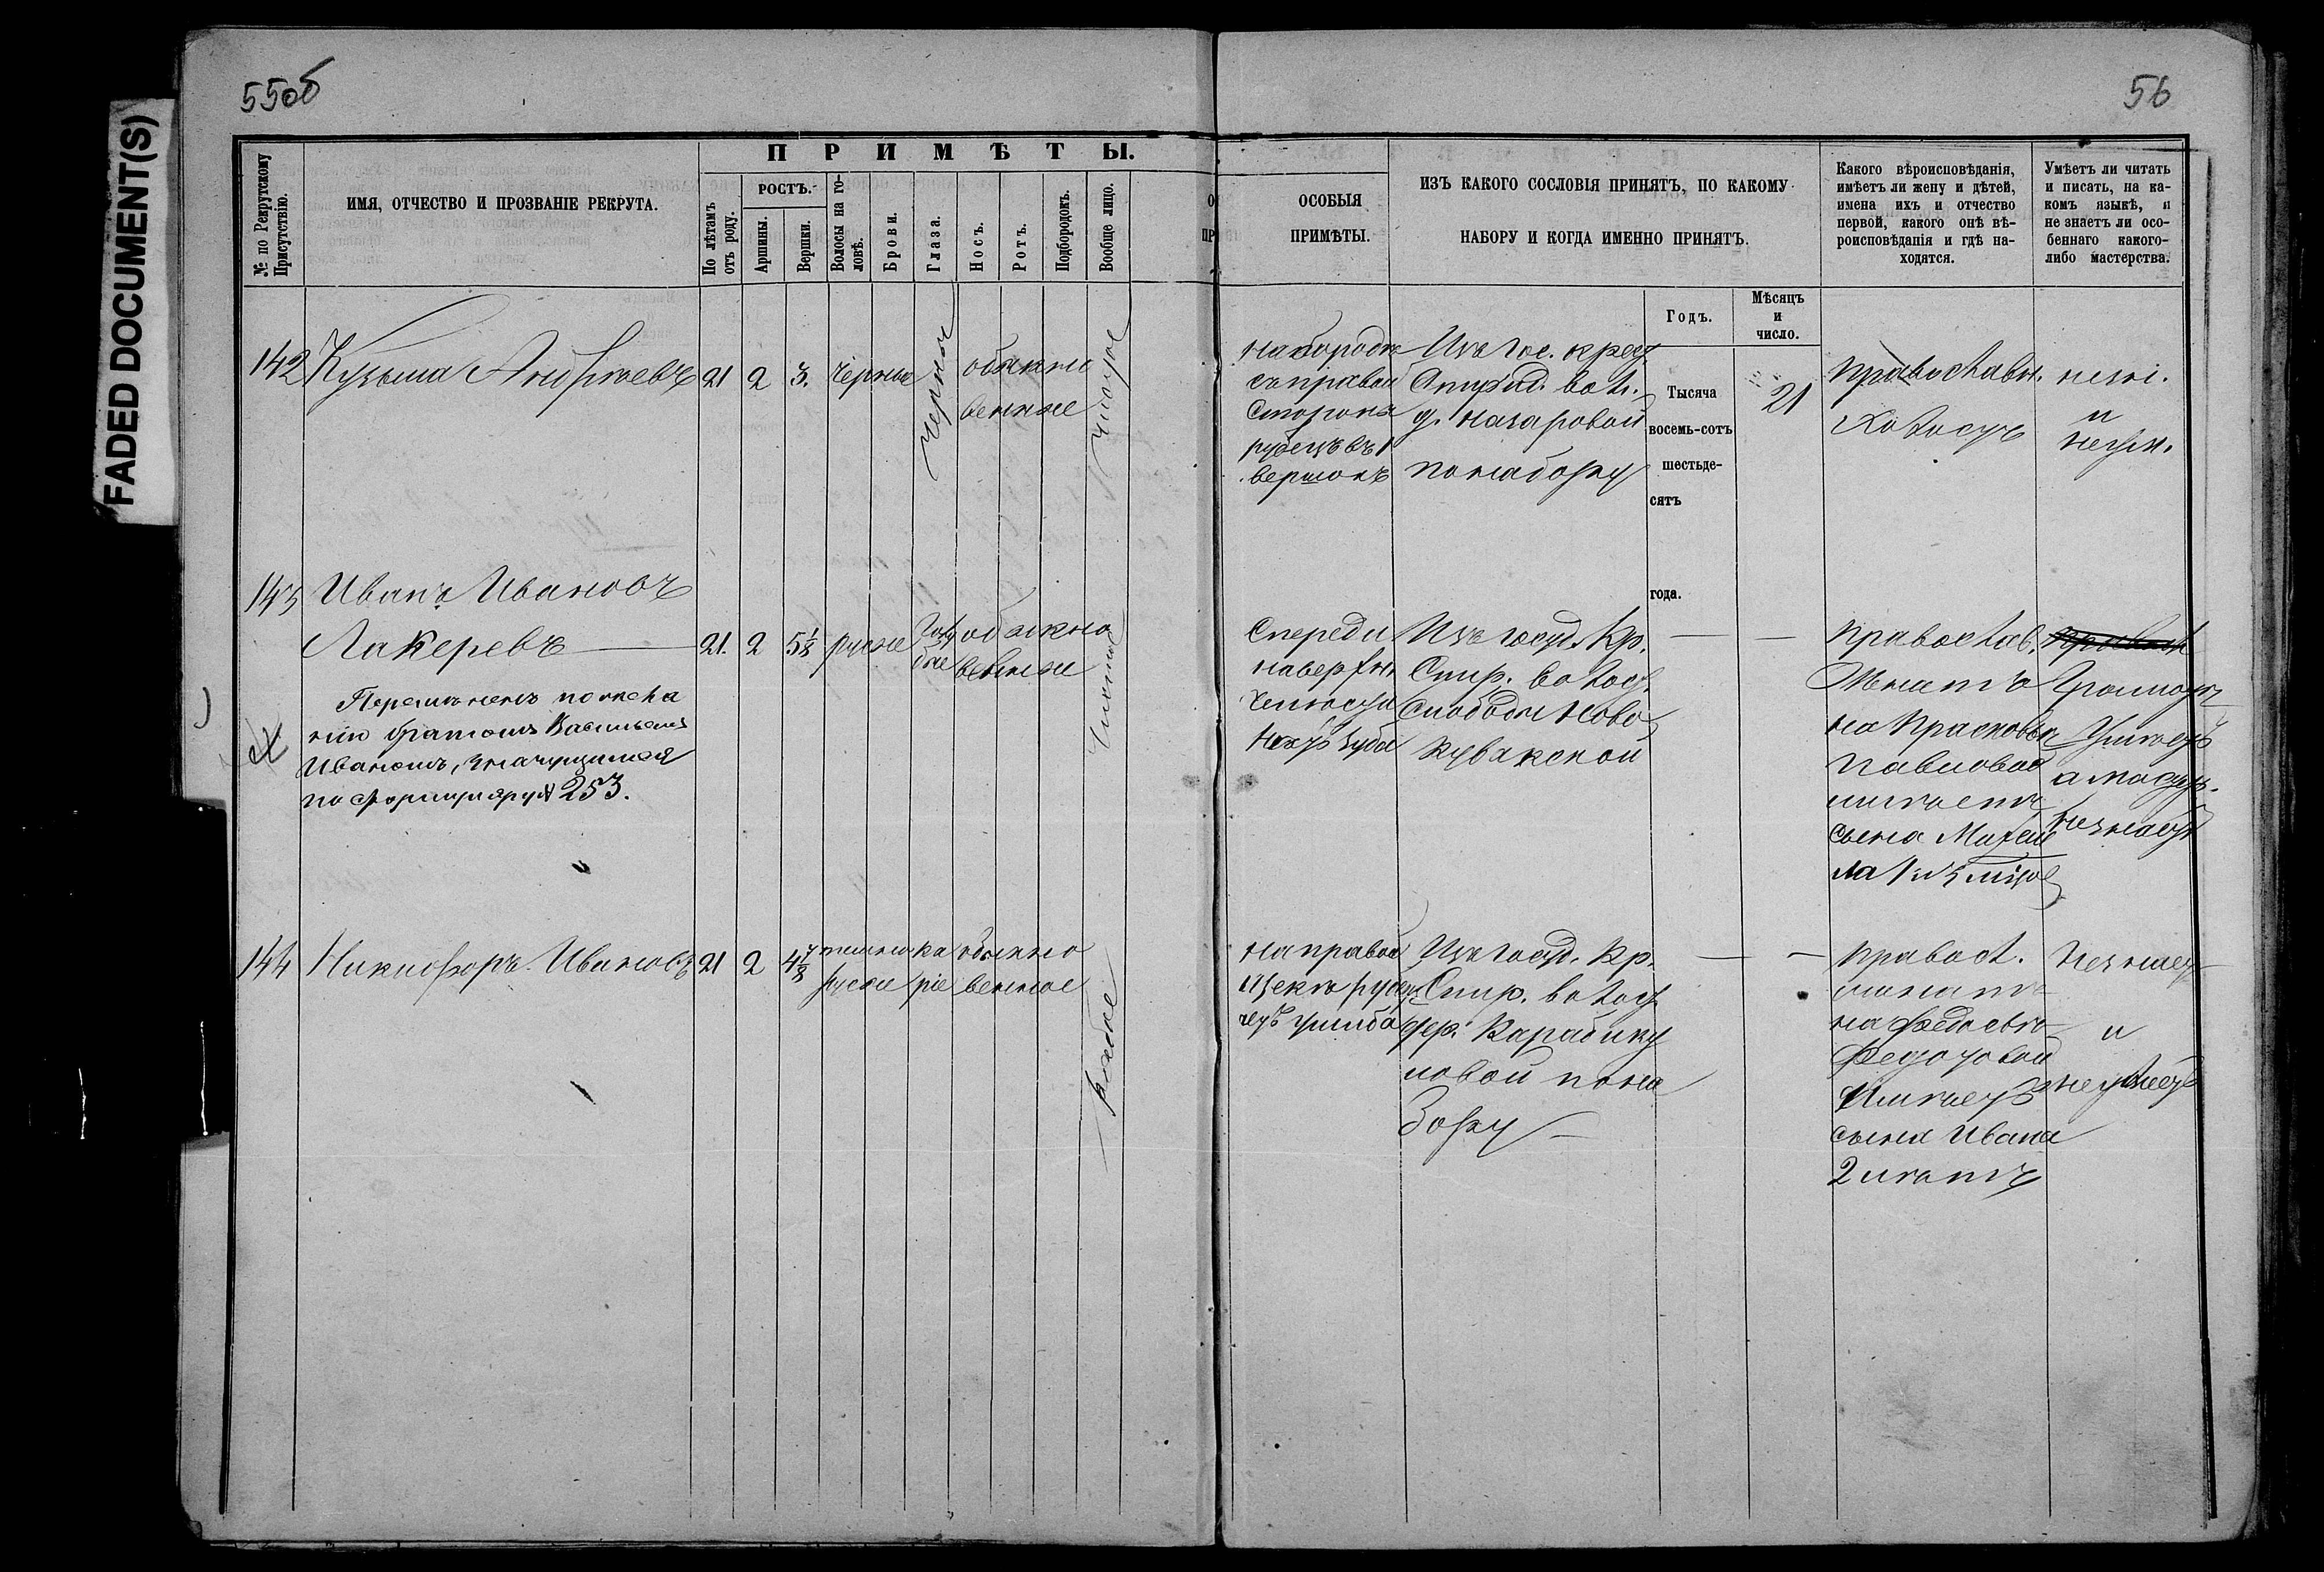 FADED DOCUMENT(S)
55об
56
№ по Рекрутскому Присутствію.
ИМЯ, ОТЧЕСТВО И ПРОЗВАНІЕ РЕКРУТА.
ПРИМѢТЫ.
По лѣтамъ отъ роду.
РОСТЪ.
Аршины.
Вершки.
Волосы на головѣ.
Брови.
Глаза.
Носъ.
Ротъ.
Подбородокъ.
Вообще лицо.
ОСОБЫЯ
ПРИМѢТЫ.
ИЗЪ КАКОГО СОСЛОВІЯ ПРИНЯТЪ, ПО КАКОМУ
НАБОРУ И КОГДА ИМЕННО ПРИНЯТЪ.
Годъ.
Мѣсяцъ
и
число.
Какого вѣроисповѣданія,
имѣетъ ли жену и дѣтей,
имена ихъ и отчество
первой, какого онѣ вѣ-
роисповѣданія и гдѣ на-
ходятся.
Умѣетъ ли читать
и писать, на ка-
комъ языкѣ, и
не знаетъ ли осо-
беннаго какого-
либо мастерства.
142 Кузьма Андреевъ 21 2 3. Черные Черные обыкно
венные Чистое
на бородѣ
съ правой
стороны
рубецъ въ 1
вершокъ
Изъ Гос. крест.
Спирид. вол.
д. Назаровой
по набору
Тысяча
восемь-сотъ
шестьде-
сятъ
года.
21
православн.
Холостъ
незн.
и
неум.
143 Иванъ Ивановъ
Лакеревъ 21. 2 5 1/8 русые Голу
бые обыкно
венные Чистое
Перемѣненъ по жела
нію братомъ Васильемъ
Ивановымъ, значущимся
по формуляру № 253.
Спереди
на верхн.
челюсти
нѣтъ зуба
Изъ госуд. Кр.
Спир. волос.
Слободы Ново
Кувакской
православ.
Женатъ
на Прасковьи
Павловой
имѣетъ
сына Михаи
ла
Грамотѣ
Умѣетъ
а мастер.
незнаетъ
144 Никифоръ Ивановъ 21 2 4 7/8 темно
русые ка
ріе обыкно
венное Рябое
на правой
щекѣ рубец
Изъ госуд. Кр.
Спир. волос.
дер. Карабику
ловой по на
бору
правосл.
женатъ
на Федосьѣ
Федотовой
Имѣетъ
сына Ивана
2 лѣтъ
Незнает
и
неумѣетъ